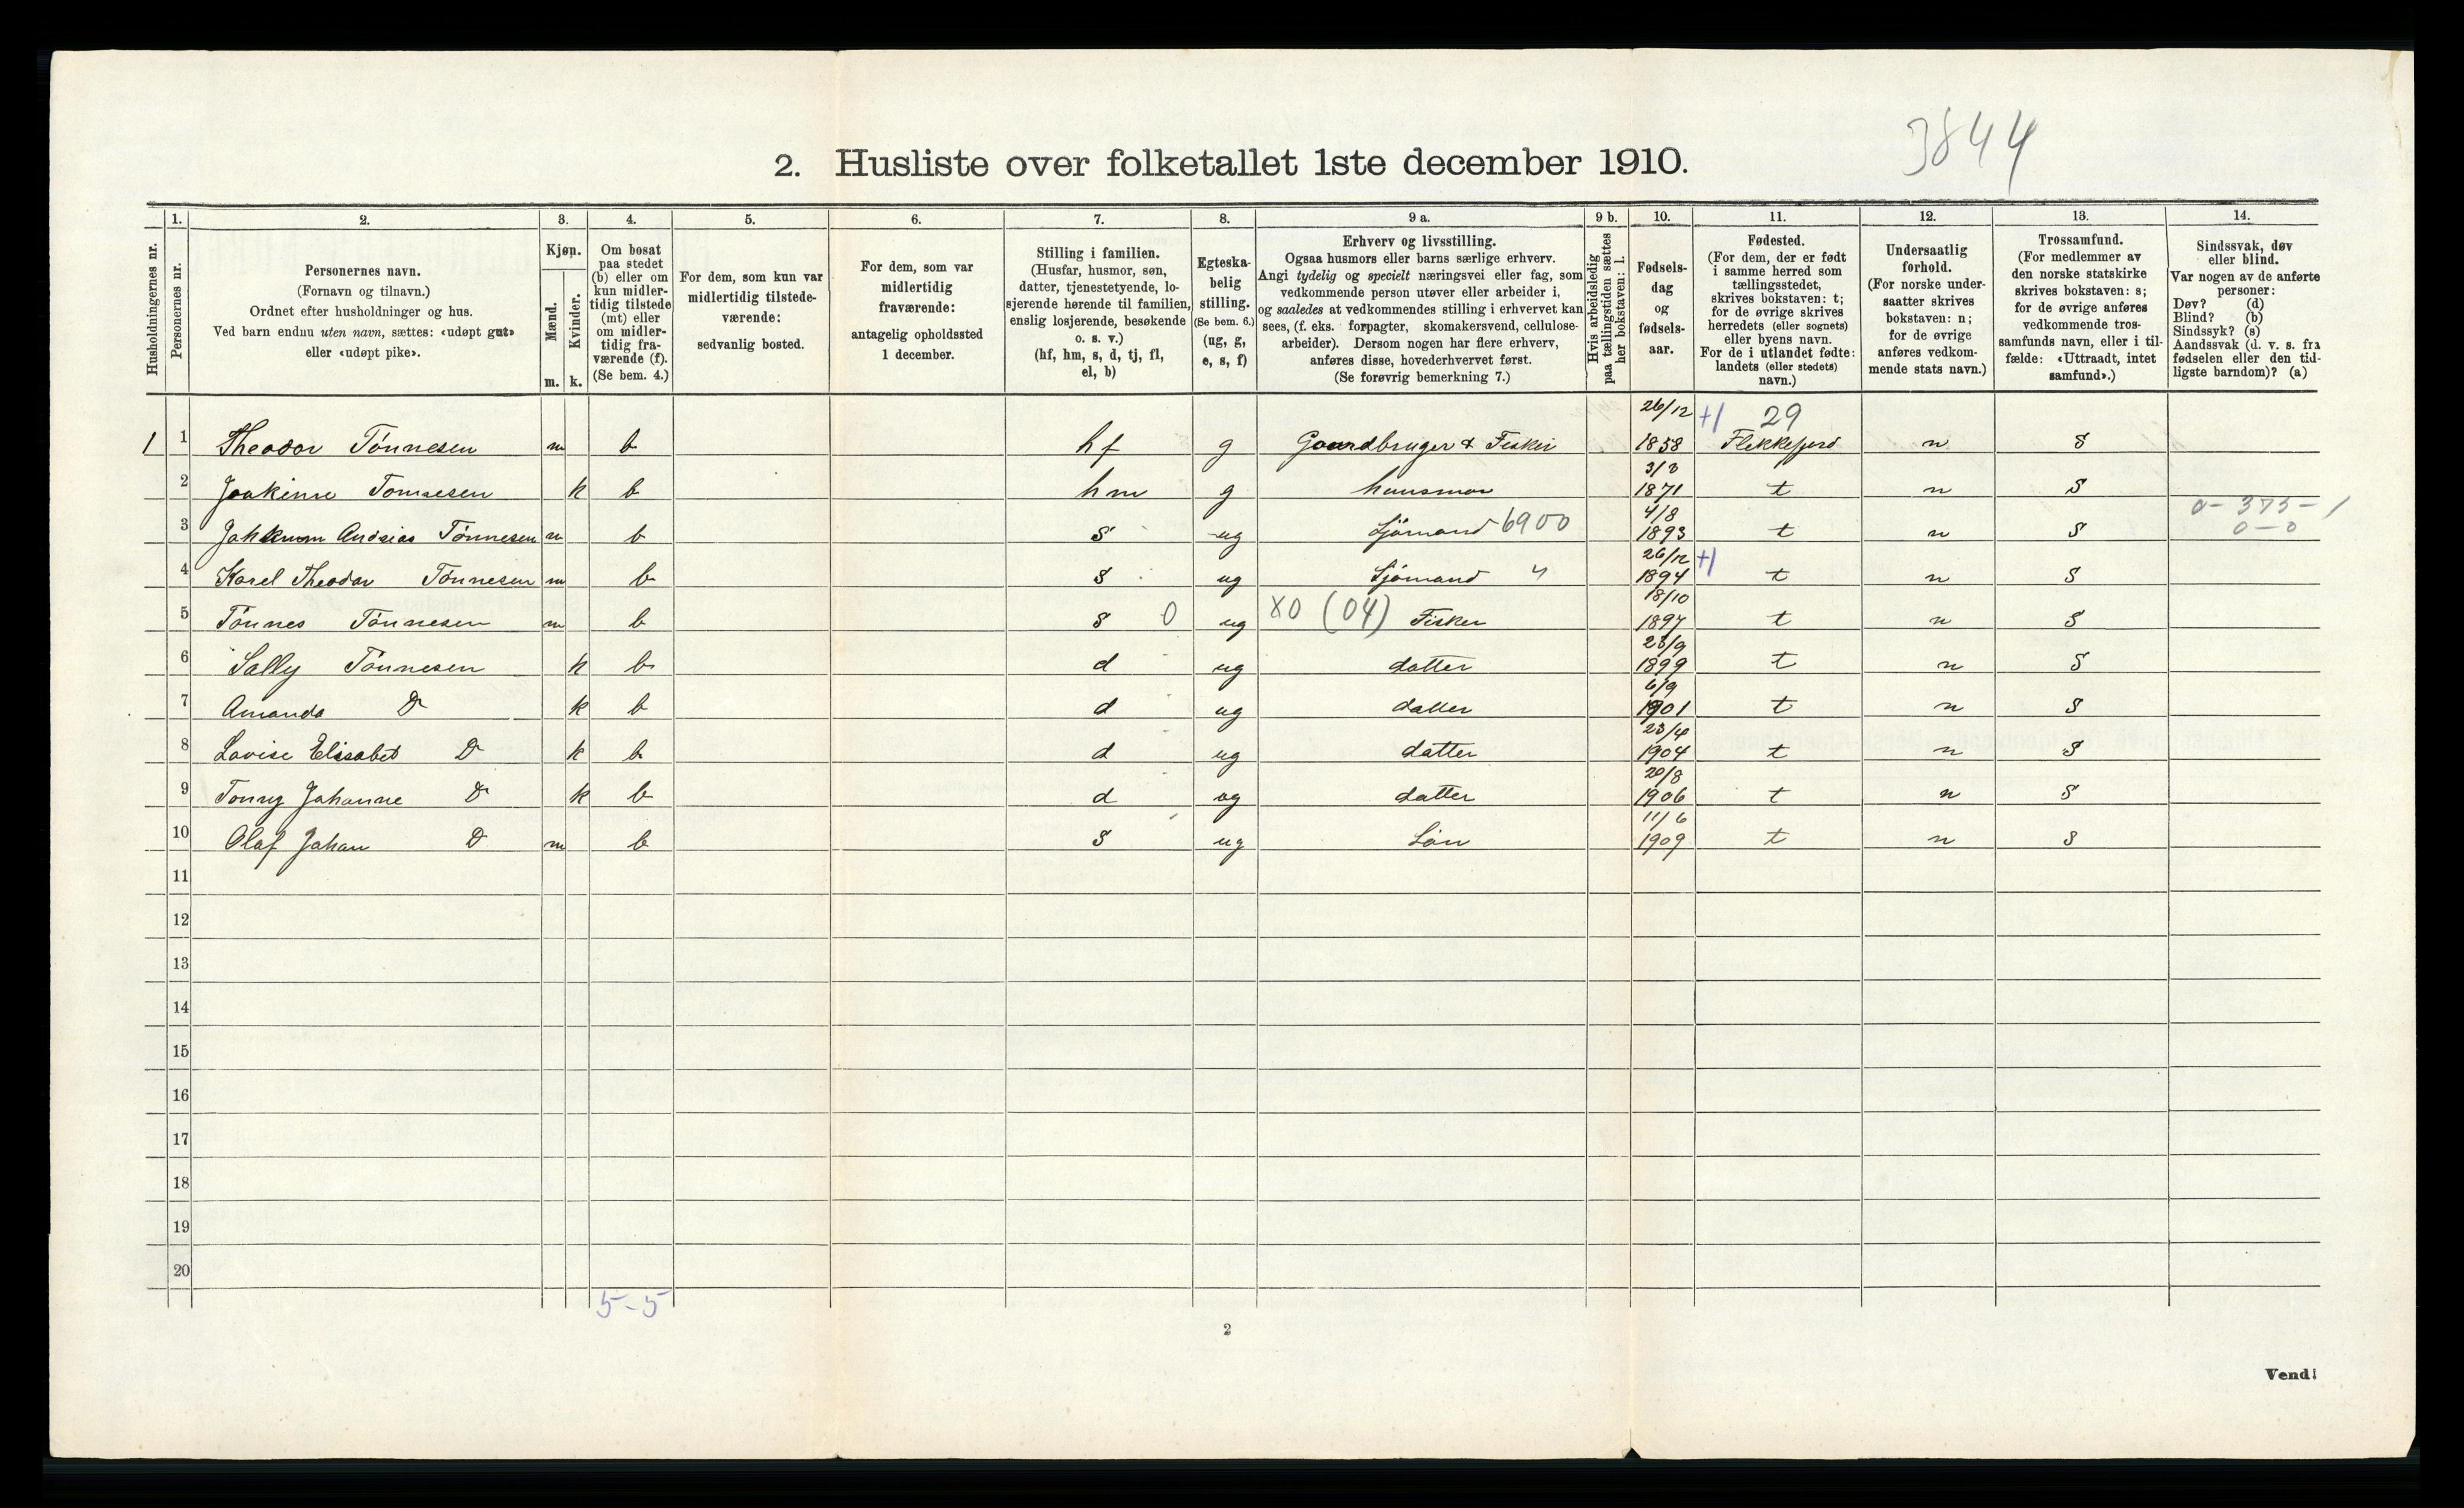 3844
2. Husliste over folketallet 1ste december 1910.
Husholdningernes nr.
1. Personernes nr.
2. Personernes navn.
(Fornavn og tilnavn.)
Ordnet efter husholdninger og hus.
Ved barn endnu uten navn, sættes: «udøpt gut»
eller «udøpt pike».
3. Kjøn.
Mænd. m.
Kvinder. k.
4. Om bosat
paa stedet
(b) eller om
kun midler-
tidig tilstede
(mt) eller
om midler-
tidig fra-
værende (f).
(Se bem. 4.)
5. For dem, som kun var
midlertidig tilstede-
værende:
sedvanlig bosted.
6. For dem, som var
midlertidig
fraværende:
antagelig opholdssted
1 december.
7. Stilling i familien.
(Husfar, husmor, søn,
datter, tjenestetyende, lo-
sjerende hørende til familien,
enslig losjerende, besøkende
o. s. v.)
(hf, hm, s, d, tj, fl,
el, b)
8. Egteska-
belig
stilling.
(Se bem. 6.)
(ug, g,
e, s, f)
9 a. Erhverv og livsstilling.
Ogsaa husmors eller barns særlige erhverv.
Angi tydelig og specielt næringsvei eller fag, som
vedkommende person utøver eller arbeider i,
og saaledes at vedkommendes stilling i erhvervet kan
sees, (f. eks. forpagter, skomakersvend, cellulose-
arbeider). Dersom nogen har flere erhverv,
anføres disse, hovederhvervet først.
(Se forøvrig bemerkning 7.)
9 b. Hvis arbeidsledig
paa tællingstiden sættes
her bokstaven: l.
10. Fødsels-
dag
og
fødsels-
aar.
11. Fødested.
(For dem, der er født
i samme herred som
tællingsstedet,
skrives bokstaven: t;
for de øvrige skrives
herredets (eller sognets)
eller byens navn.
For de i utlandet fødte:
landets (eller stedets)
navn.)
12. Undersaatlig
forhold.
(For norske under-
saatter skrives
bokstaven: n;
for de øvrige
anføres vedkom-
mende stats navn.)
13. Trossamfund.
(For medlemmer av
den norske statskirke
skrives bokstaven: s;
for de øvrige anføres
vedkommende tros-
samfunds navn, eller i til-
fælde: «Uttraadt, intet
samfund».)
14. Sindssvak, døv
eller blind.
Var nogen av de anførte
personer:
Døv? (d)
Blind? (b)
Sindssyk? (s)
Aandssvak (d. v. s. fra
fødselen eller den tid-
ligste barndom)? (a)
26/12 +1 29
1 1 Theodor Tönnesen m b hf g Gaardbruger & Fisker 1858 Flekkefjord n S
3/3
2 Joakime Tönnesen k b hm g huusmor 1871 t n S
4/8 0-375-1
3 Andreas Tönnesen m b S ug Sjömand 6900 1893 t n S 0-0
26/12 +1
4 Karel Theodor Tönnesen m b S ug Sjömand 1894 t n S
18/10
5 Tönnes Tönnesen m b S 0 ug X0 (04) Fisker 1897 t n S
23/9
6 Sally Tönnesen k b d ug datter 1899 t n S
6/9
7 Amanda Do k b d ug datter 1901 t n S
23/4
8 Lovise Elisabet Do k b d ug datter 1904 t n S
20/8
9 Tonny Johanne Do k b d ug datter 1906 t n S
11/6
10 Olaf Johan Do m b S ug Sön 1909 t n S
11
12
13
14
15
16
17
18
19
20
5-5
2
Vend!